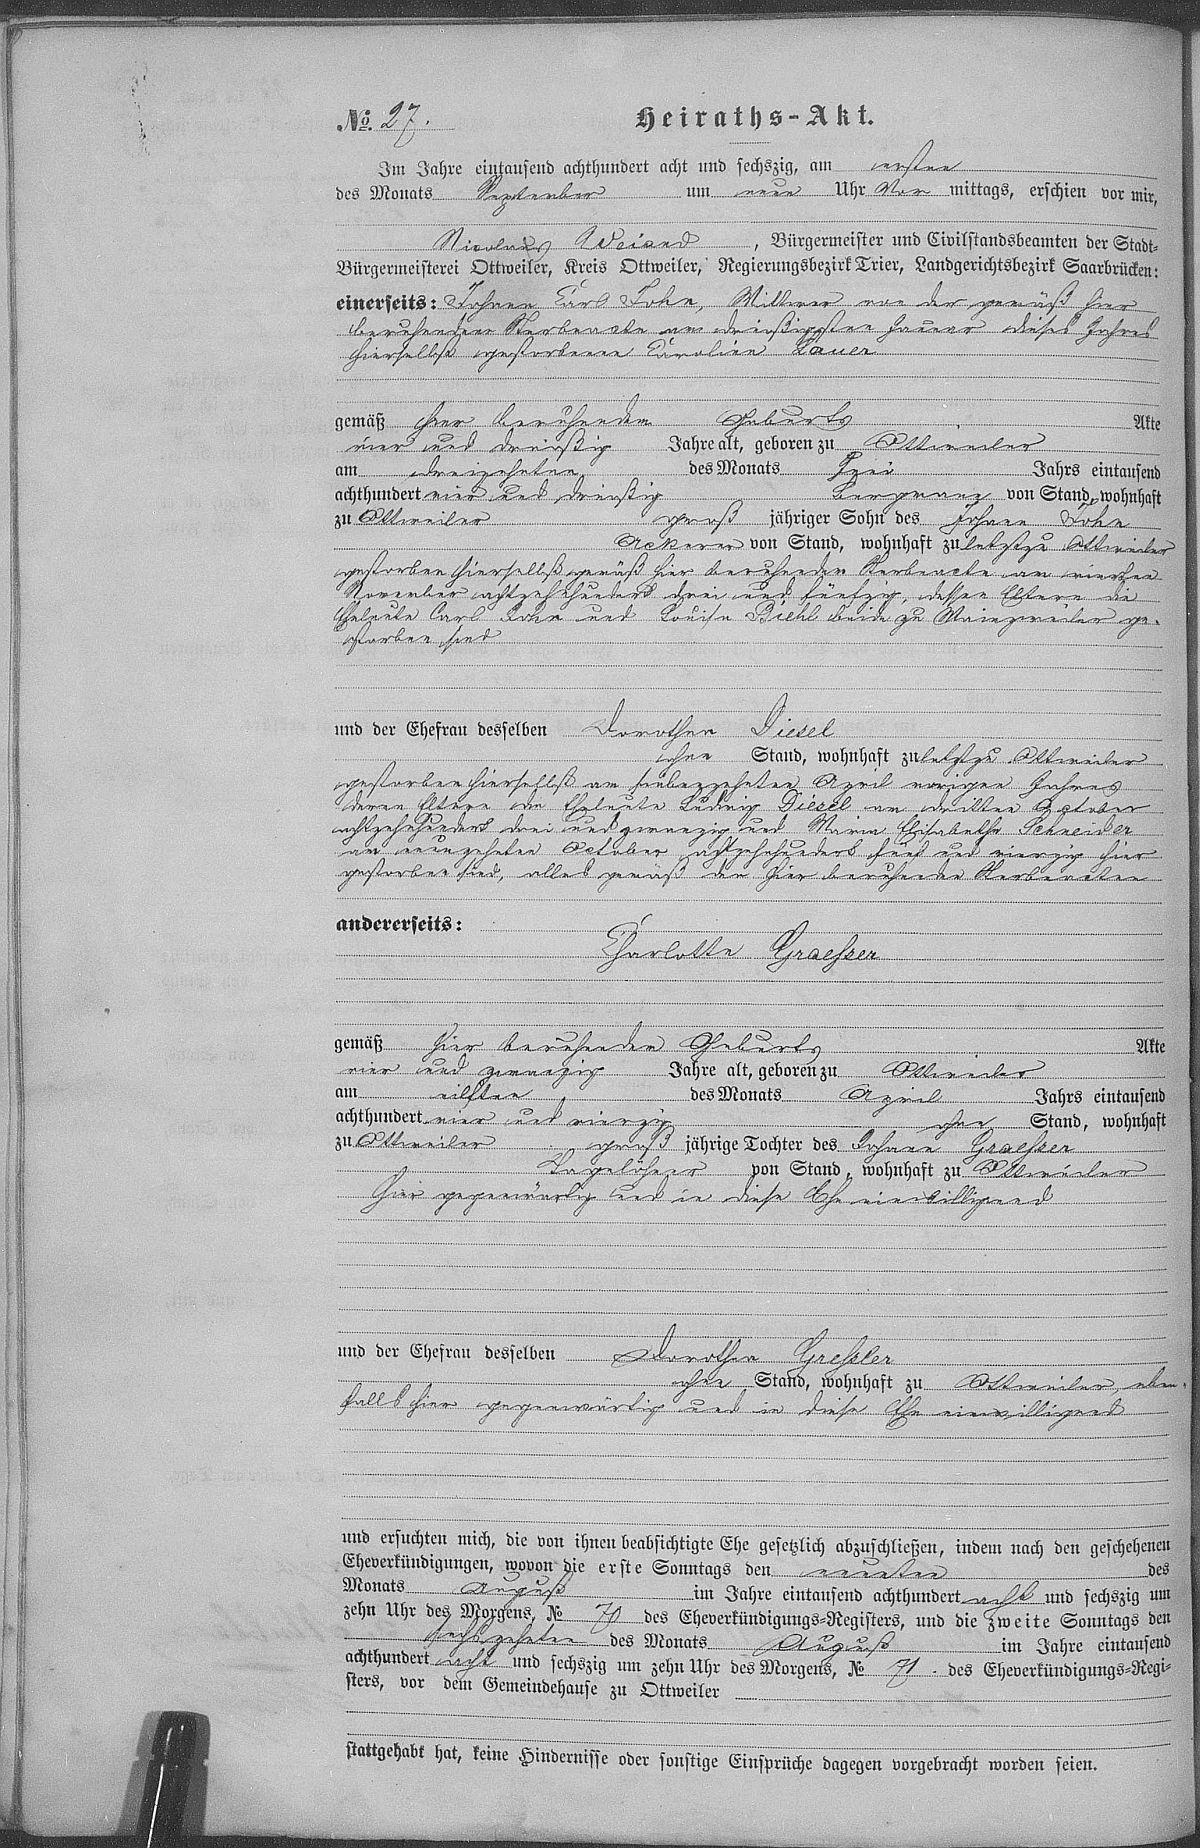 № 27. Heiraths-Akt.
Im Jahre eintausend achthundert acht und sechszig, am ersten
des Monats September um neun Uhr Vor mittags, erschien vor mir,
Nicolaus Weisend, Bürgermeister und Civilstandsbeamten der Stadt-
Bürgermeisterei Ottweiler, Kreis Ottweiler, Regierungsbezirk Trier, Landgerichtsbezirk Saarbrücken:
einerseits: Johann Carl Fohn, Wittwer von der gemäß hier
beruhenden Sterbeacte am dreißigsten Januar dieses Jahres
hierselbst gestorbenen Karolina Lauer
gemäß hier beruhenden Geburts Akte
vier und dreißig Jahre alt, geboren zu Ottweiler
am dreizehnten des Monats Juni Jahrs eintausend
achthundert vier und dreißig Bergmann von Stand, wohnhaft
zu Ottweiler groß jähriger Sohn des Johann Fohn
Ackerer von Stand, wohnhaft zuletzt zu Ottweiler
gestorben hierselbst gemäß hier beruhenden Sterbeacte am vierten
November achtzehnhundert drei und fünfzig, dessen Eltern die
Eheleute Carl Fohn und Louise Biehl beide zu Mainzweiler ge-
storben sind
und der Ehefrau desselben Dorothea Diesel
ohne Stand, wohnhaft zuletzt zu Ottweiler
gestorben hierselbst am siebenzehnten April vorigen Jahres
deren Eltern die Eheleute Ludwig Diesel am dritten October
achtzehnhundert drei und zwanzig und Maria Elisabetha Schneider
am neunzehnten October achtzehnhundert fünf und vierzig hier
gestorben sind, alles gemäß den hier beruhenden Sterbeacten
andererseits:
Charlotte Graeßer
gemäß hier beruhenden Geburts Akte
vier und zwanzig Jahre alt, geboren zu Ottweiler
am eilften des Monats April Jahrs eintausend
achthundert vier und vierzig ohne Stand, wohnhaft
zu Ottweiler groß jährige Tochter des Johann Graeßer
Tagelöhner von Stand, wohnhaft zu Ottweiler
hier gegenwärtig und in diese Ehe einwilligend
und der Ehefrau desselben Dorothea Greßler
ohne Stand, wohnhaft zu Ottweiler, eben-
falls hier gegenwärtig und in diese Ehe einwilligend
und ersuchten mich, die von ihnen beabsichtigte Ehe gesetzlich abzuschließen, indem nach den geschehenen
Eheverkündigungen, wovon die erste Sonntags den neunten des
Monats August im Jahre eintausend achthundert acht und sechszig um
zehn Uhr des Morgens, № 70 des Eheverkündigungs-Registers, und die zweite Sonntags den
sechszehnten des Monats August im Jahre eintausend
achthundert acht und sechszig um zehn Uhr des Morgens, № 71. des Eheverkündigungs-Regi-
sters, vor dem Gemeindehause zu Ottweiler
stattgehabt hat, keine Hindernisse oder sonstige Einsprüche dagegen vorgebracht worden seien.